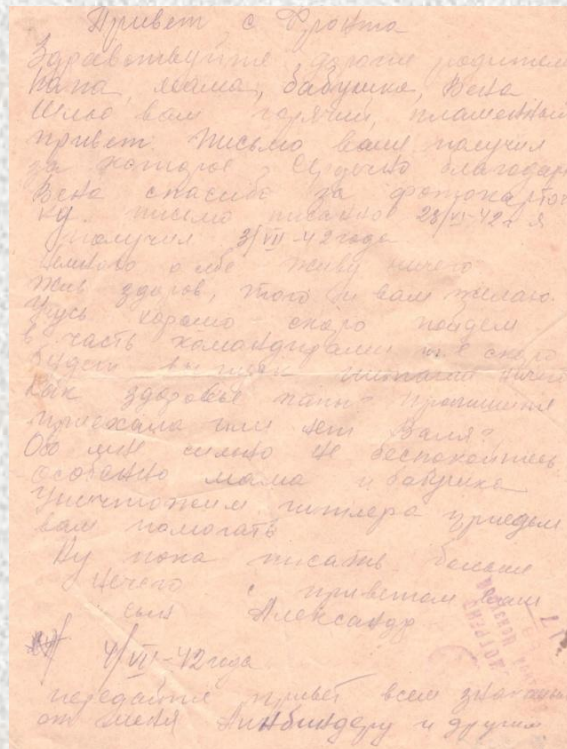 Привет с Фронта
Здравствуйте дорогие родители
папа, мама, бабушка, Вена
Шлю вам горячий, пламенный
привет. Письмо ваше получил
за которое сердечно благодарю
Вена спасибо за фотокарточ
ку. письмо писано 28/VI-42 г я
получил 3/VII-42 года
немного о себе живу ничего
жив здоров, того и вам желаю.
Учусь хорошо скоро пойдем
в часть командирами скоро
будет выпуск питание ничего
как здоровье папы? пропишите
приехала или нет Валя?
Обо мне сильно не беспокойтесь
особенно мама и бабушка
уничтожим гитлера приедем
вам помогать
Ну пока писать больше
нечего с приветом ваш
сын Александр
4/VII-42 года
передайте привет всем знакомым
от меня Линбиндеру и другим